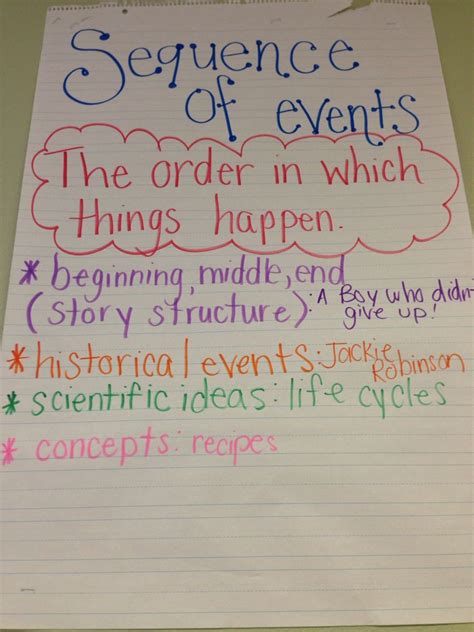 Sequence
of events
The order in which
things happen.
* beginning, middle, end
(story structure): A Boy who didn-
give up!
* historical events: Jackie
Robinson
* scientific ideas: life cycles
* concepts: recipes